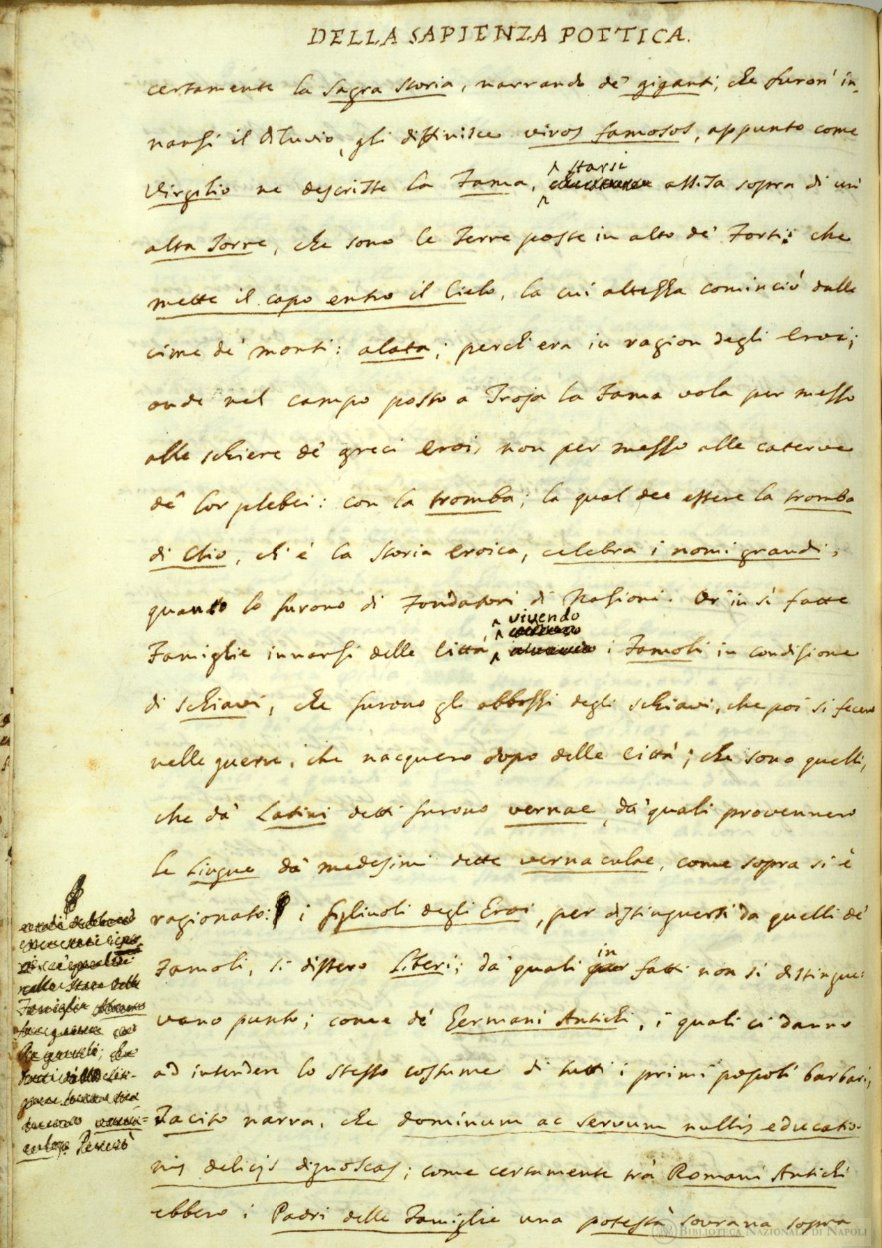 DELLA SAPIENZA POETICA.
certamente la Sagra Storia, narrando de' giganti, che furon' in-
nanzi il Diluvio, gli diffinisce viros famosos, appunto come
Virgilio ne descrisse la Fama, starsi assisa sopra di un'
alta Torre, che sono le Terre poste in alto de' Forti: che
mette il capo entro il Cielo, la cui altezza cominciò dalle
cime de' monti: alata; perch' era in ragion degli Eroi;
onde nel campo posto a Troja la Fama vola per mezzo
alle schiere de' greci Eroi, non per mezzo alle caterve
de' lor plebei: con la tromba; la qual dee essere la tromba
di Clio, ch' è la Storia Eroica, celebra i nomi grandi,
quanto lo furono di Fondatori di Nazioni. Or' in sì fatte
Famiglie innanzi delle Città vivendo i Famoli in condizione
di schiavi, che furono gli abbozzi degli schiavi, che poi si fecero
nelle guerre, che nacquero dopo delle Città; che sono quelli,
che da' Latini detti furono vernae, da' quali provennero
le Lingue da' medesimi dette vernaculae, come sopra si è
ragionato: i figliuoli degli Eroi, per distinguersi da quelli de'
Famoli, si dissero Liberi; da' quali in fatti non si distingue-
vano punto; come de' Germani Antichi, i quali ci danno
ad intendere lo stesso costume di tutti i primi popoli barbari,
Tacito narra, che dominum ac servum nullis educatio-
nis delicijs dignoscas; come certamente trà Romani Antichi
ebbero i Padri delle Famiglie una potestà sovrana sopra
Perciò
BIBLIOTECA NAZIONALE DI NAPOLI